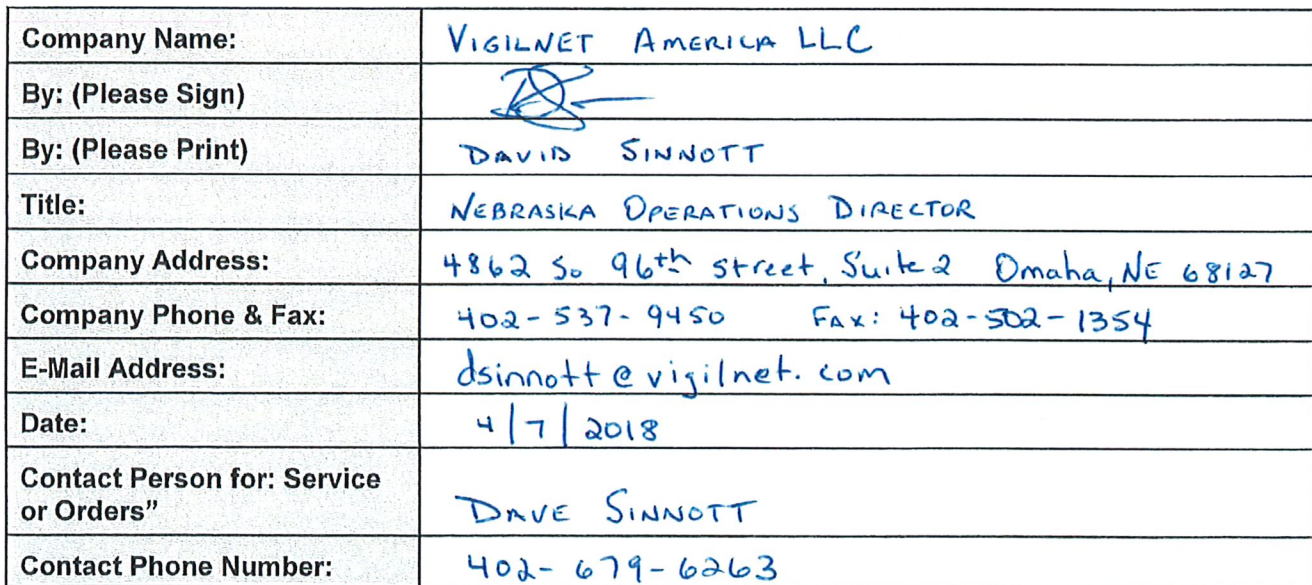 Company Name: VIGILNET AMERICA LLC
By: (Please Sign)
By: (Please Print) DAVID SINNOTT
Title: NEBRASKA OPERATIONS DIRECTOR
Company Address: 4862 So 96th street, Suite 2 Omaha, NE 68127
Company Phone & Fax: 402-537-9450 FAX: 402-502-1354
E-Mail Address: dsinnott@vigilnet.com
Date: 4/7/2018
Contact Person for: Service
or Orders” DAVE SINNOTT
Contact Phone Number: 402-679-6263